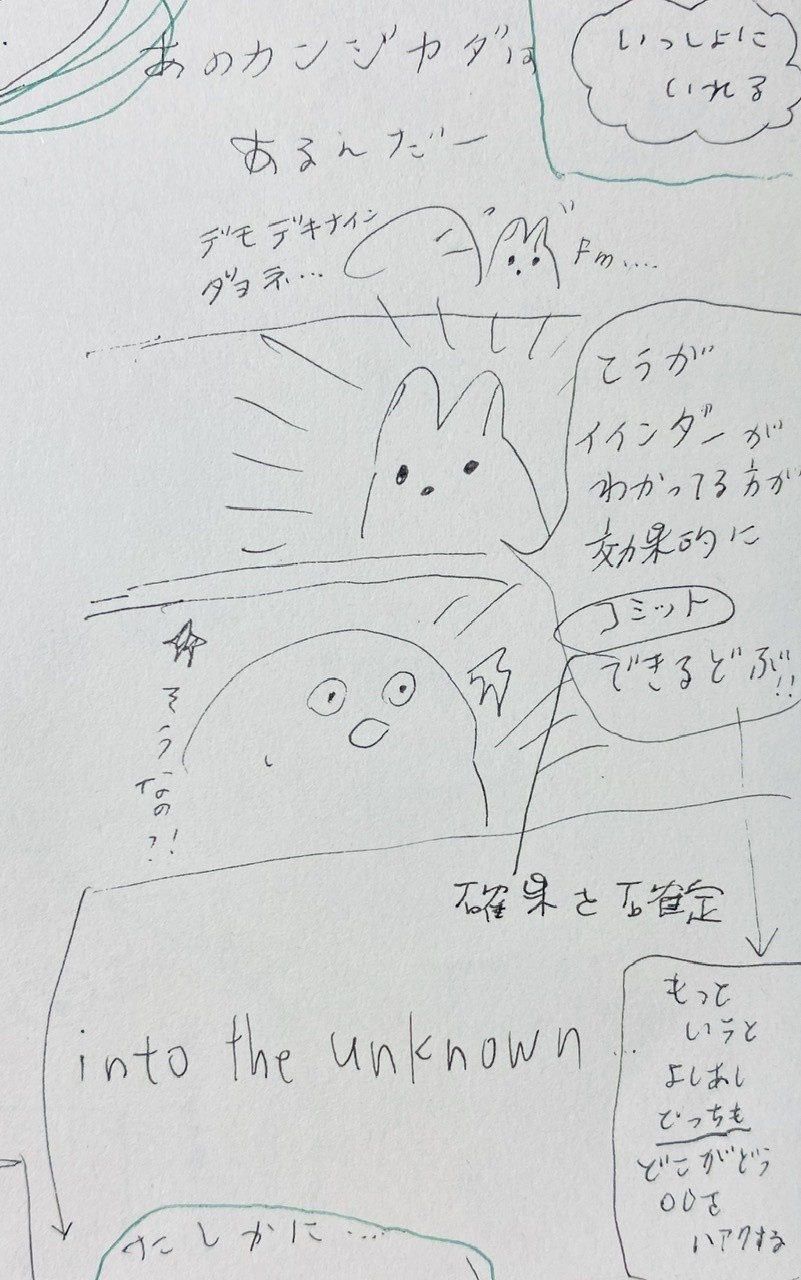 あのカンジカダは
あるんだー
いっしょに
いれる
デモデキナイン
ダヨネ…
Fm....
こうが
イインダーが
わかってる方が
効果的に
コミット
できるどぶ!!
そうなの?!
確果と確定
into the unknown ...
もっと
いうと
よしあし
どっちも
どこがどう
〇〇を
ハアクする
たしかに……